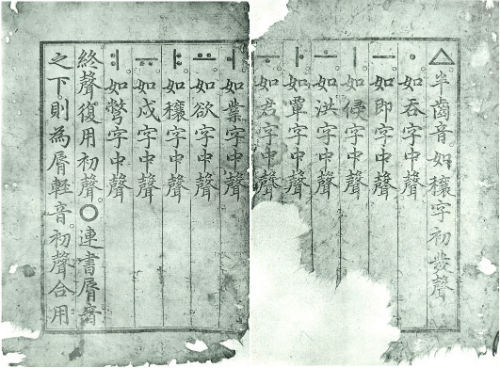 ㅿ半齒音。如穰字初發聲
ㆍ如呑字中聲
ㅡ如即字中聲
ㅣ如侵字中聲
ㅗ如洪字中聲
ㅏ如覃字中聲
ㅜ如君字中聲
ㅓ如業字中聲
ㅛ如欲字中聲
ㅑ如穰字中聲
ㅠ如戌字中聲
ㅕ如彆字中聲
終聲復用初聲。○連書脣音
之下則為脣輕音。初聲合用